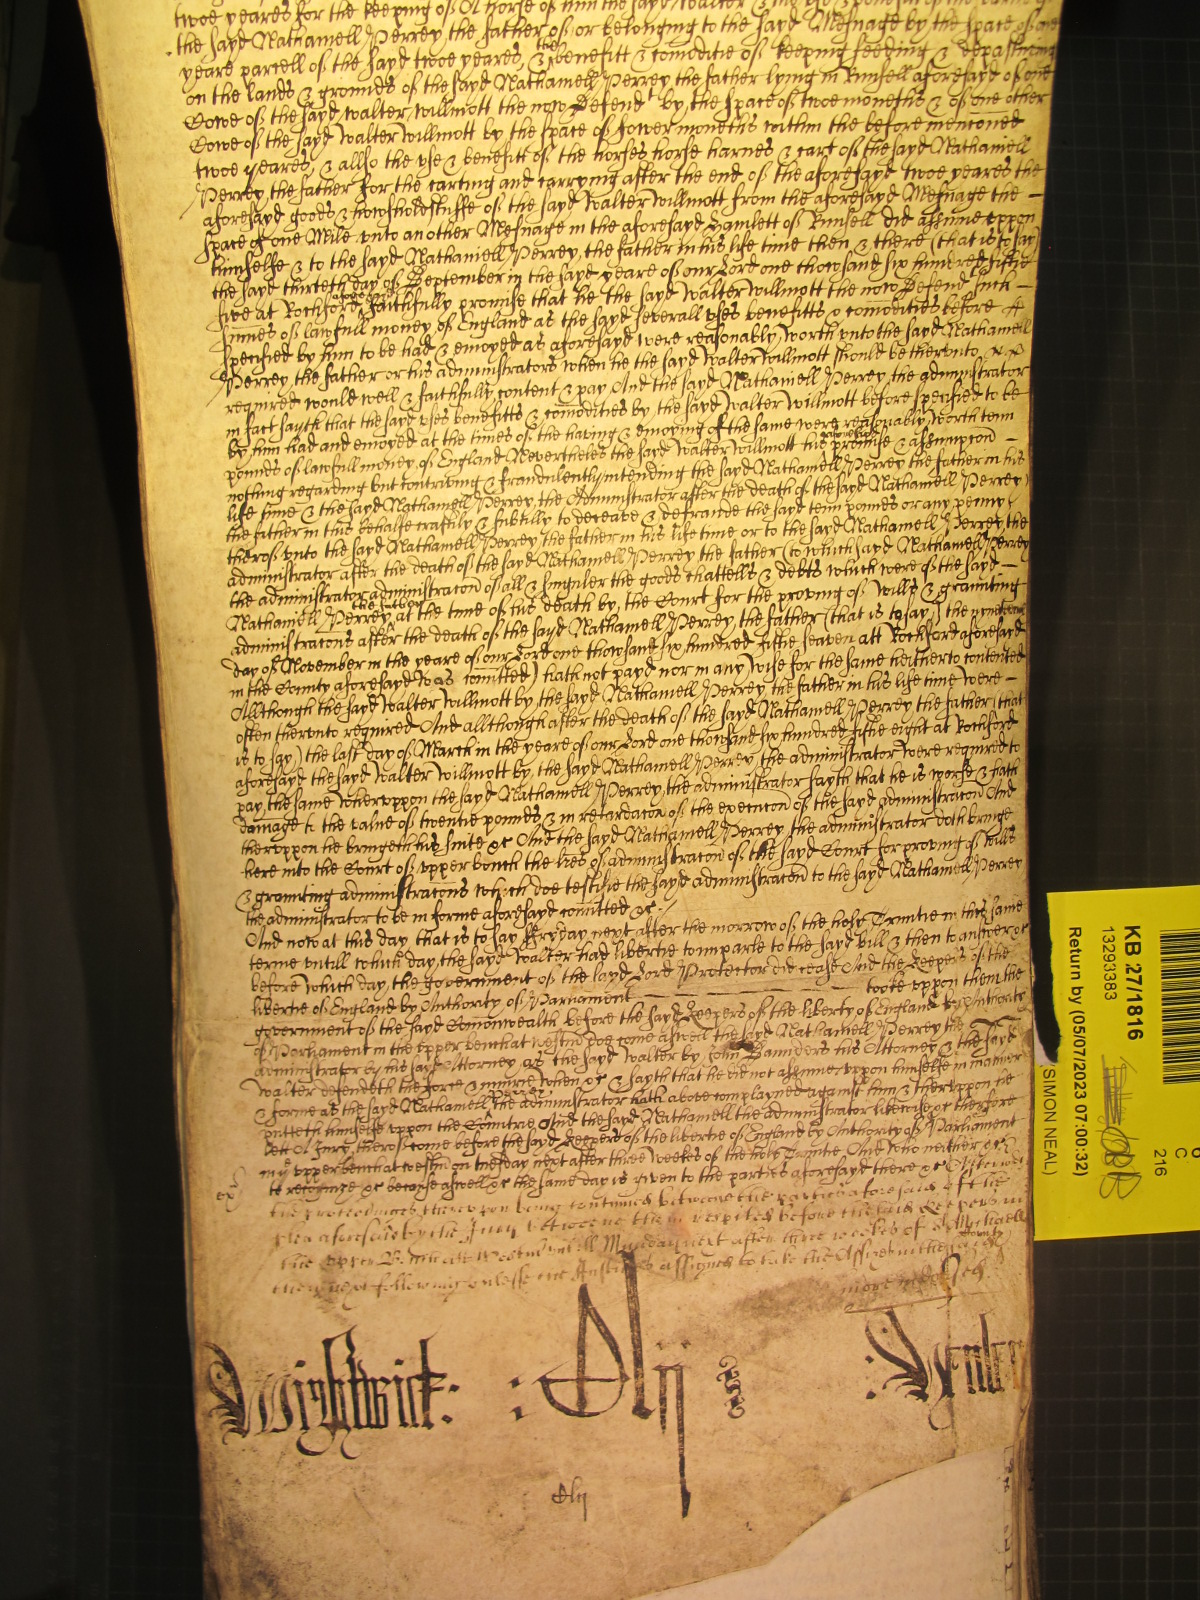 twoe yeares for the keeping of A horse of him the sayd Walter
the sayd Nathaniell Perrey the father of or belonging to the sayd Mesuage by the space of one
yeare parcell of the sayd twoe yeares, & the benefitt & comoditie of keeping feeding & depasturing
on the lands & grounds of the sayd Nathaniell Perrey the father lying in Runsell aforesayd of one
Cowe of the sayd Walter Willmott the now Defend<sup>t</sup> by the space of twoe moneths & of one other
Cowe of the sayd Walter Willmott by the space of fower moneths within the before mentioned
twoe yeares, & allso the vse & benefitt of the horses horse harnes & cart of the sayd Nathaniell
Perrey the father for the carting and carrying after the end of the aforesayd twoe yeares the
aforesayd goods & howsholdstuffe of the sayd Walter Willmott from the aforesayd Mesuage the
space of one Mile vnto an other Mesuage in the aforesayd Hamlett of Runsell did assume vppon
himselfe & to the sayd Nathaniell Perrey the father in his life time then & there (that is to say)
the sayd thirteth day of September in the sayd yeare of our Lord one thowsand six hundred fiftie
five at Rochford aforesayd faithfully promise that he the sayd Walter Willmott the now Defend<sup>t</sup> such
summes of lawfull money of England as the sayd severall vses benefitts & comodities before
specified by him to be had & enioyed as aforesayd were reasonably worth vnto the sayd Nathaniell
Perrey the father or his administrators when he the sayd Walter Willmott should be thervnto
required would well & faithfully content & pay And the sayd Nathaniell Perrey the administrator
in fact sayth that the sayd vses benefitts & comodities by the sayd Walter Willmott before specified to be
by him had and enioyed at the times of the having & enioying of the same were reasonably worth tenn
pounds of lawfull money of England Nevertheles the sayd Walter Willmott his aforesayd promise & assumpcon
nothing regarding but contriving & fraudulently intending the sayd Nathaniell Perrey the father in his
life time & the sayd Nathaniell Perrey the Administrator after the death of the sayd Nathaniell Perrey
the father in this behalfe craftily & subtilly to deceave & defraude the sayd tenn pounds or any penny
therof vnto the sayd Nathaniell Perrey the father in his life time or to the sayd Nathaniell Perrey the
administrator after the death of the sayd Nathaniell Perrey the father (to which sayd Nathaniell Perrey
the administrator administracon of all & singuler the goods chattells & debts which were of the sayd
Nathaniell Perrey the father at the time of his death by the Court for the proving of Wills & graunting
administracons after the death of the sayd Nathaniell Perrey the father (that is to say) the
day of November in the yeare of our Lord one thowsand six hundred fiftie seaven att Rochford aforesayd
in the County aforesayd was comitted) hath not payd nor in any wise for the same hitherto contented
Allthough the sayd Walter Willmott by the sayd Nathaniell Perrey the father in his life time were
often thervnto required And allthough after the death of the sayd Nathaniell Perrey the father (that
is to say) the last day of March in the yeare of our Lord one thowsand six hundred fiftie eight at Rochford
aforesayd the sayd Walter Willmott by the sayd Nathaniell Perrey the administrator were required to
pay the same Whervppon the sayd Nathaniell Perrey the administrator sayth that he is worse & hath
damage to the value of twentie pounds & in retardacon of the execucon of the sayd administracon And
thervppon he bringeth his suite &c And the sayd Nathaniell Perrey the administrator doth bringe
here into the Court of vpper bench the lres of administracon of the sayd Court for proving of wills
& graunting administracons which doe testifie the sayd administracon to the sayd Nathaniell Perrey
the administrator to be in forme aforesayd comitted &c
And now at this day that is to say Fryday next after the morrow of the holy Trinitie in this same
terme vntill which day the sayd Walter had libertie to imparle to the sayd bill & then to answer &c
before which day the government of the sayd Lord Protector did cease And the Keepers of the
libertie of England by Authority of Parliament tooke vppon them the
government of the sayd Comonwealth before the sayd Keepers of the liberty of England by Authority
of Parliament in the vpper bench at Westm doe come aswell the sayd Nathaniell Perrey the
administrator by his sayd Attorney as the sayd Walter by John Saunders his Attorney & the sayd
Walter defendeth the force & iniurie when &c & sayth that he did not assume vppon himselfe in manner
& forme as the sayd Nathaniell Perrey the administrator hath above complayned against him & thervppon he
putteth himselfe vppon the Countrie And the sayd Nathaniell the administrator likewise &c therfore
lett A Jury therof come before the sayd Keepers of the libertie of England by Authority of Parliament
in the vpper bench at Westm on tuesday next after three weekes of the holy Trinitie And who neither &c
to recognize &c because aswell &c the same day is given to the parties aforesayd there &c Afterwards
the proces thervpon being continued betweene the parties aforesaid of the
plea aforesaid by the Jury betweene them respited before the said Keepers in
the vpper Bench att Westm vntill Munday next after three weekes of S<sup>t</sup> Michaell
then next following vnlesse the Justices assigned to take the Assizes in the County
Wightwick : Olij
Olij
KB 27/1816
13293383
Return by (05/07/2023 07:00:32)
(SIMON NEAL)
C
216